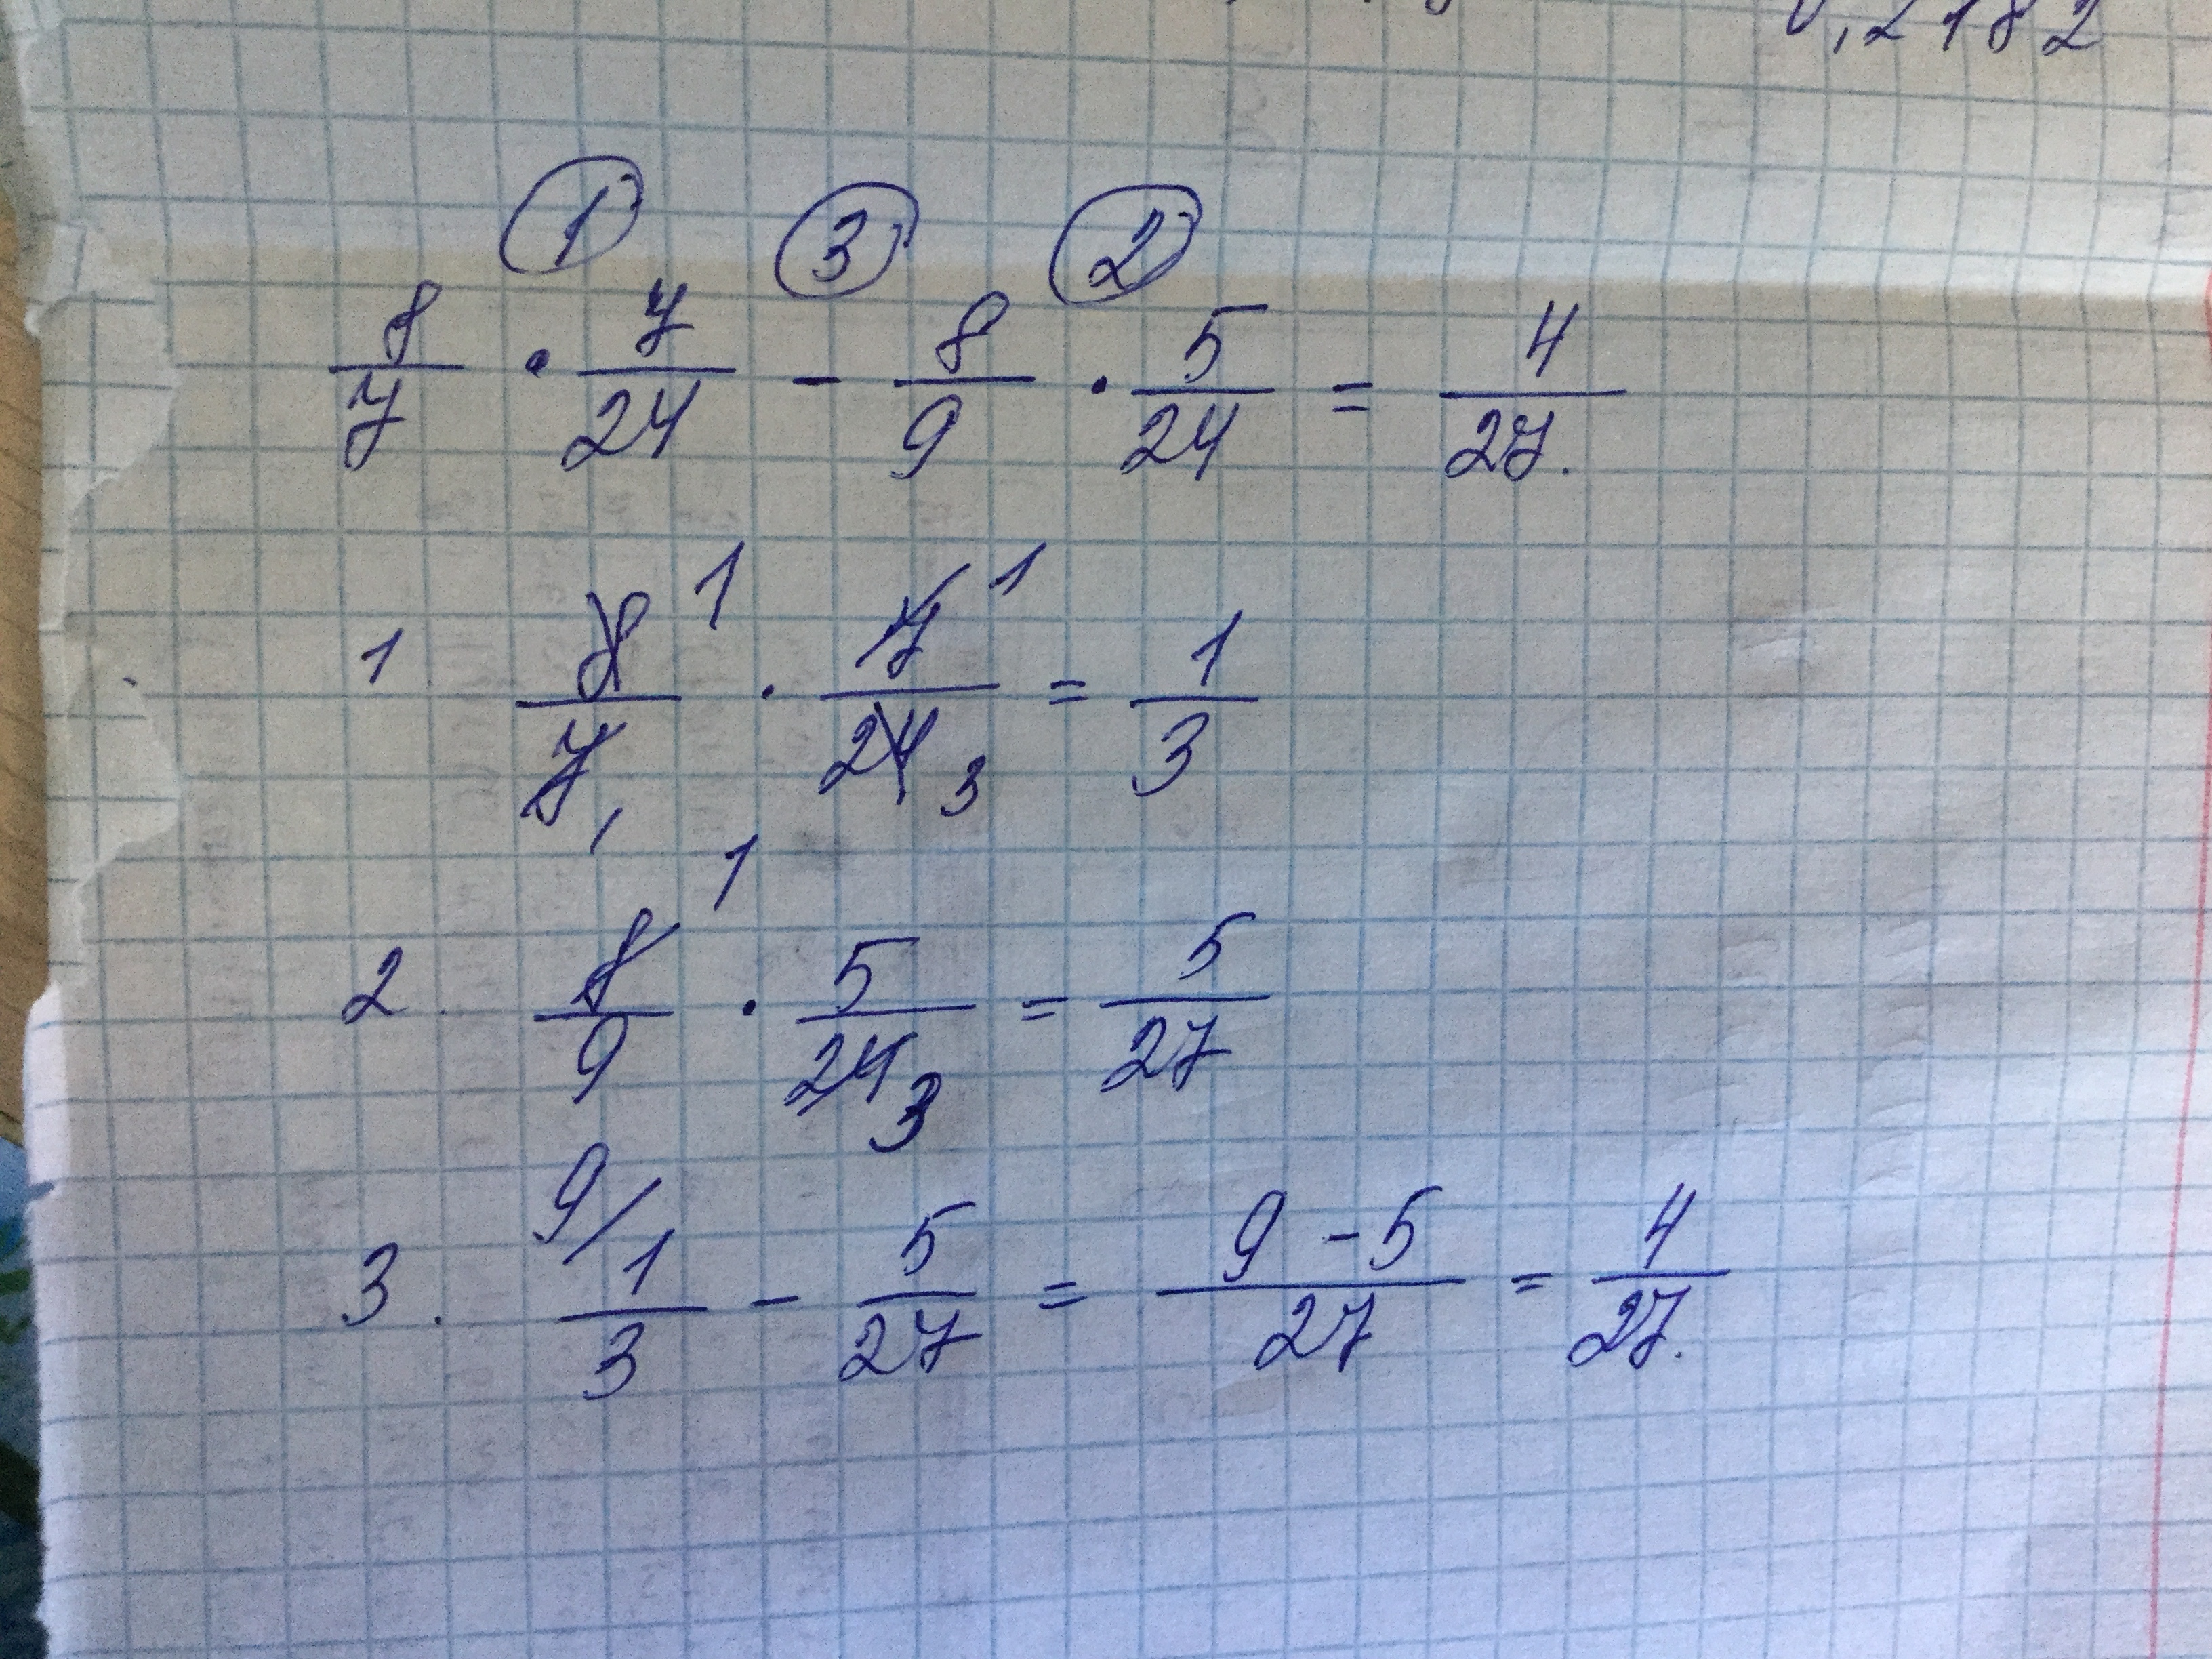 0,2182
① ③ ②
8/7 · 7/24 - 8/9 · 5/24 = 4/27.
1 8/7 1 1 · 7/24 1 3 = 1/3
2. 8/9 1 · 5/24 3 = 5/27
3. 9/ 1/3 - 5/27 = 9-5/27 = 4/27.